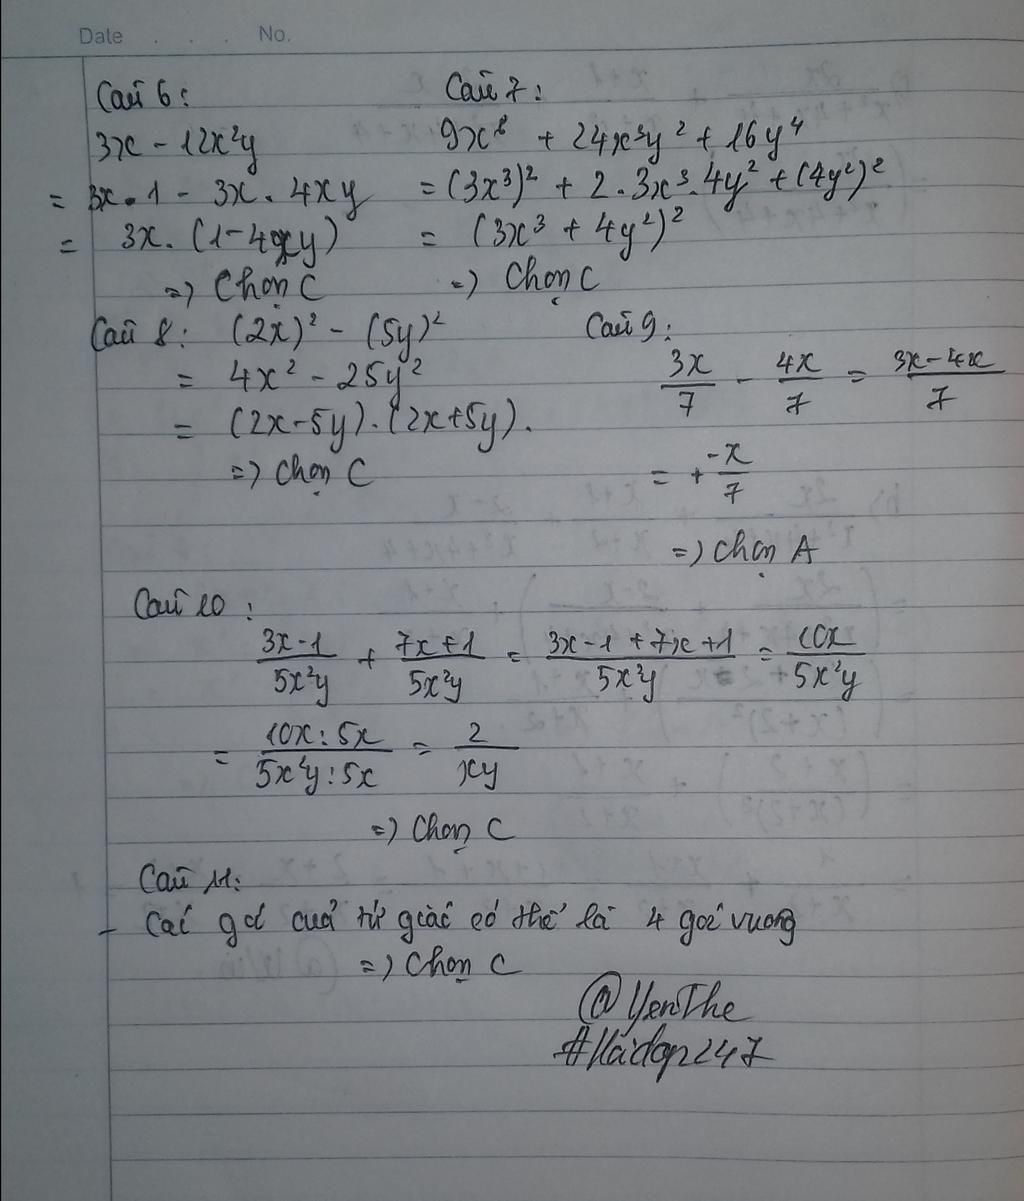 Date . . . No.
Câu 6:
3x - 12x²y
= 3x.1 - 3x.4xy
= 3x.(1-4xy)
=> Chọn C
Câu 7:
9x⁶ + 24x³y² + 16y⁴
= (3x³)² + 2.3x³.4y² + (4y²)²
= (3x³ + 4y²)²
=> Chọn C
Câu 8: (2x)² - (5y)²
= 4x² - 25y²
= (2x-5y).(2x+5y).
=> Chọn C
Câu 9:
3x/7 - 4x/7 = 3x-4x/7
= + -x/7
=> Chọn A
Câu 10:
3x-1/5x²y + 7x+1/5x²y = 3x-1+7x+1/5x²y = 10x/5x²y
= 10x:5x/5x²y:5x = 2/xy
=> Chọn C
Câu 11:
- Các góc của tứ giác có thể là 4 góc vuông
=> Chọn C
@YenThe
#Hoidap247